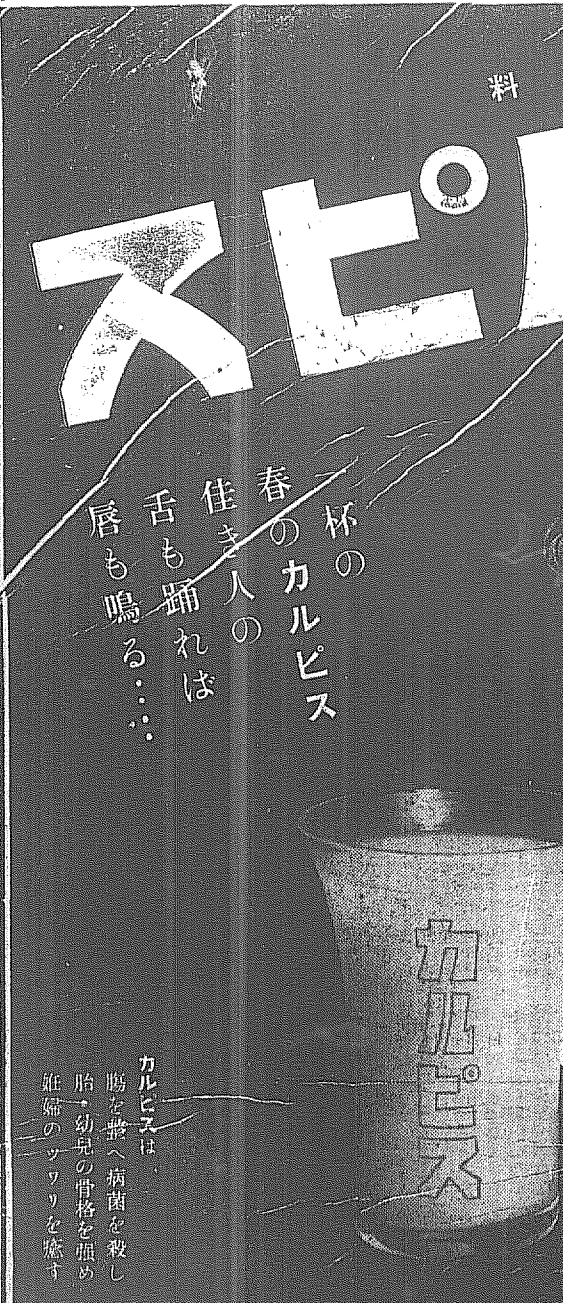 料
スピル
一杯の
春のカルピス
佳き人の
舌も踊れば
唇も鳴る……
カルピス
カルピスは
腸を整へ病菌を殺し
胎・幼兒の骨格を強め
姙婦のツワリを癒す